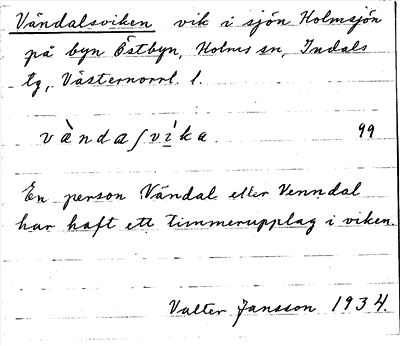 Vändalsviken vik i sjön Holmsjön
på byn Östbyn, Holms sn, Indals
tg, Västernorrl. l.
vànda∫vi̱ka 99
En person Vändal eller Venndal
har haft ett timmerupplag i viken.
Valter Jansson 1934.